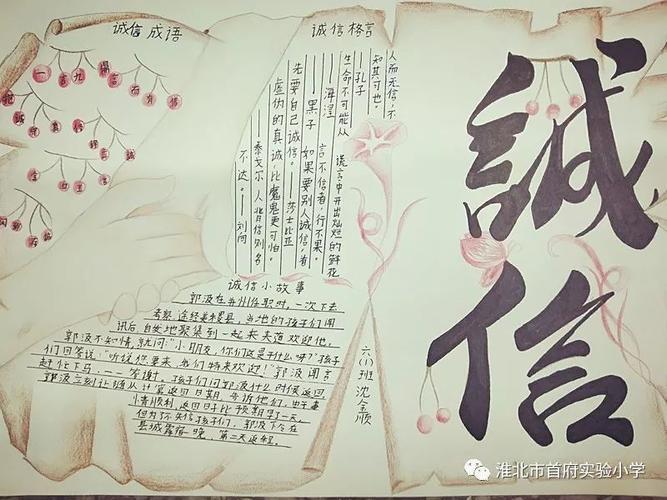 诚信成语
一言九鼎
言而有信
诚信格言
人而无信,不
知其可也。
——孔子
生命不可能从
谎言中开出灿烂的鲜花
——海涅
言不信者,行不果。
——墨子
如果要别人诚信,首
先要自己诚信。——莎士比亚
虚伪的真诚,比魔鬼更可怕。
——泰戈尔 人背信则名
不达。——刘向
诚信小故事
郭汲在并州任职时,一次下去
考察,途经美稷县,当地的孩子们闻
讯后自发地聚集到一起来夹道欢迎他,
郭汲不知情,就问:"小朋友,你们这是干什么呀?"孩子
们回答说:"听说您要来,我们特来欢迎!"郭汲闻言
赶忙下马,一一答谢,孩子们问郭汲什么时候返回
郭汲立刻让随从计算返回日期,告诉他们,由于事
情顺利,返回日子比预期早了一天,
但为了不失信孩子们,郭汲下令在
县城露宿一晚,第二天返程。
六(1)班沈金顺
誠信
淮北市首府实验小学